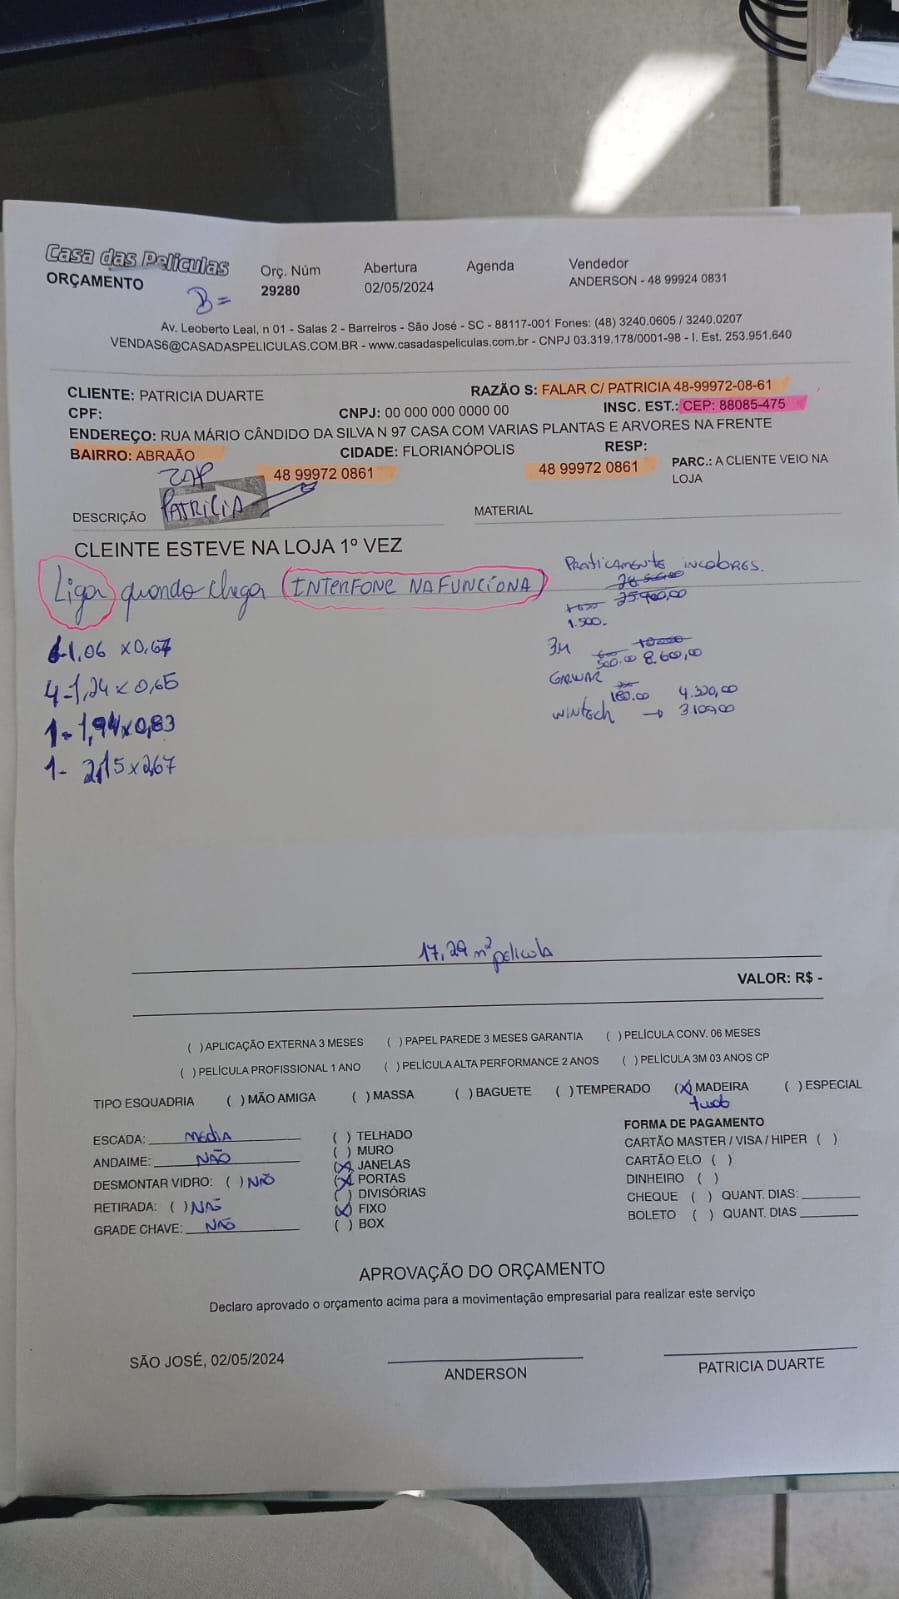 Casa das Películas
ORÇAMENTO
Orç. Núm
29280
Abertura
02/05/2024
Agenda
Vendedor
ANDERSON - 48 99924 0831
Av. Leoberto Leal, n 01 - Salas 2 - Barreiros - São José - SC - 88117-001 Fones: (48) 3240.0605 / 3240.0207
VENDAS6@CASADASPELICULAS.COM.BR - www.casadaspeliculas.com.br - CNPJ 03.319.178/0001-98 - I. Est. 253.951.640
CLIENTE: PATRICIA DUARTE RAZÃO S: FALAR C/ PATRICIA 48-99972-08-61
CPF: CNPJ: 00 000 000 0000 00 INSC. EST.: CEP: 88085-475
ENDEREÇO: RUA MÁRIO CÂNDIDO DA SILVA N 97 CASA COM VARIAS PLANTAS E ARVORES NA FRENTE
BAIRRO: ABRAÃO CIDADE: FLORIANÓPOLIS RESP:
48 99972 0861 48 99972 0861 PARC.: A CLIENTE VEIO NA LOJA
ZAP
PATRICIA
DESCRIÇÃO MATERIAL
CLEINTE ESTEVE NA LOJA 1º VEZ
Ligar quando chegar (INTERFONE NA FUNCIONA)
PRATICAMENTE INCOLORES.
25.900,00
1.500.
3M
500.00 8.600,00
GARWAR
180.00 4.320,00
WINTECH → 3.109,00
1,06 x 0,67
4-1,24 x 0,65
1- 1,94 x 0,83
1- 2,15 x 2,67
17,29 m² pelicola
VALOR: R$ -
( ) APLICAÇÃO EXTERNA 3 MESES ( ) PAPEL PAREDE 3 MESES GARANTIA ( ) PELÍCULA CONV. 06 MESES
( ) PELÍCULA PROFISSIONAL 1 ANO ( ) PELÍCULA ALTA PERFORMANCE 2 ANOS ( ) PELÍCULA 3M 03 ANOS CP
TIPO ESQUADRIA ( ) MÃO AMIGA ( ) MASSA ( ) BAGUETE ( ) TEMPERADO (X) MADEIRA ( ) ESPECIAL
tudo
ESCADA: MEDIA
ANDAIME: NÃO
DESMONTAR VIDRO: ( ) NÃO
RETIRADA: ( ) NÃO
GRADE CHAVE: NÃO
( ) TELHADO
( ) MURO
(X) JANELAS
(X) PORTAS
( ) DIVISÓRIAS
(X) FIXO
( ) BOX
FORMA DE PAGAMENTO
CARTÃO MASTER / VISA / HIPER ( )
CARTÃO ELO ( )
DINHEIRO ( )
CHEQUE ( ) QUANT. DIAS:
BOLETO ( ) QUANT. DIAS
APROVAÇÃO DO ORÇAMENTO
Declaro aprovado o orçamento acima para a movimentação empresarial para realizar este serviço
SÃO JOSÉ, 02/05/2024
ANDERSON
PATRICIA DUARTE